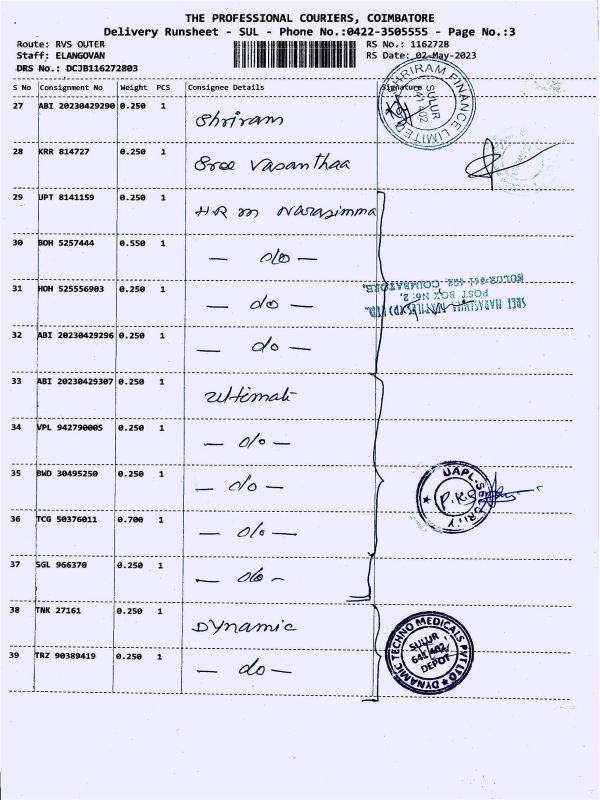 THE PROFESSIONAL COURIERS, COIMBATORE
Delivery Runsheet - SUL - Phone No.:0422-3505555 - Page No.:3
Route: RVS OUTER RS No.: 1162728
Staff: ELANGOVAN RS Date: 02-May-2023
DRS No.: DCJB116272803
S No Consignment No Weight PCS Consignee Details Signature
27 ABI 20230429290 0.250 1 Shriram
SHRIRAM FINANCE LIMITED
SULUR
641 402
28 KRR 814727 0.250 1 Sree Vasanthaa
29 UPT 8141159 0.250 1 H R m Narasimma
30 BOH 5257444 0.550 1 — do —
31 HOH 525556903 0.250 1 — do —
SREE NARASIMHA TEXTILES (P) LTD.
POST BOX NO: 2,
SULUR-641 402. COIMBATORE.
32 ABI 20230429296 0.250 1 — do —
33 ABI 20230429307 0.250 1 Ultimate
34 VPL 942790005 0.250 1 — do —
35 BWD 30495250 0.250 1 — do —
UAPL. SECURITY
36 TCG 50376011 0.700 1 — do —
37 SGL 966370 0.250 1 — do —
38 TNK 27161 0.250 1 Dynamic
DYNAMIC TECHNO MEDICALS PVT LTD
SULUR
641 402
DEPOT
39 TRZ 90389419 0.250 1 — do —